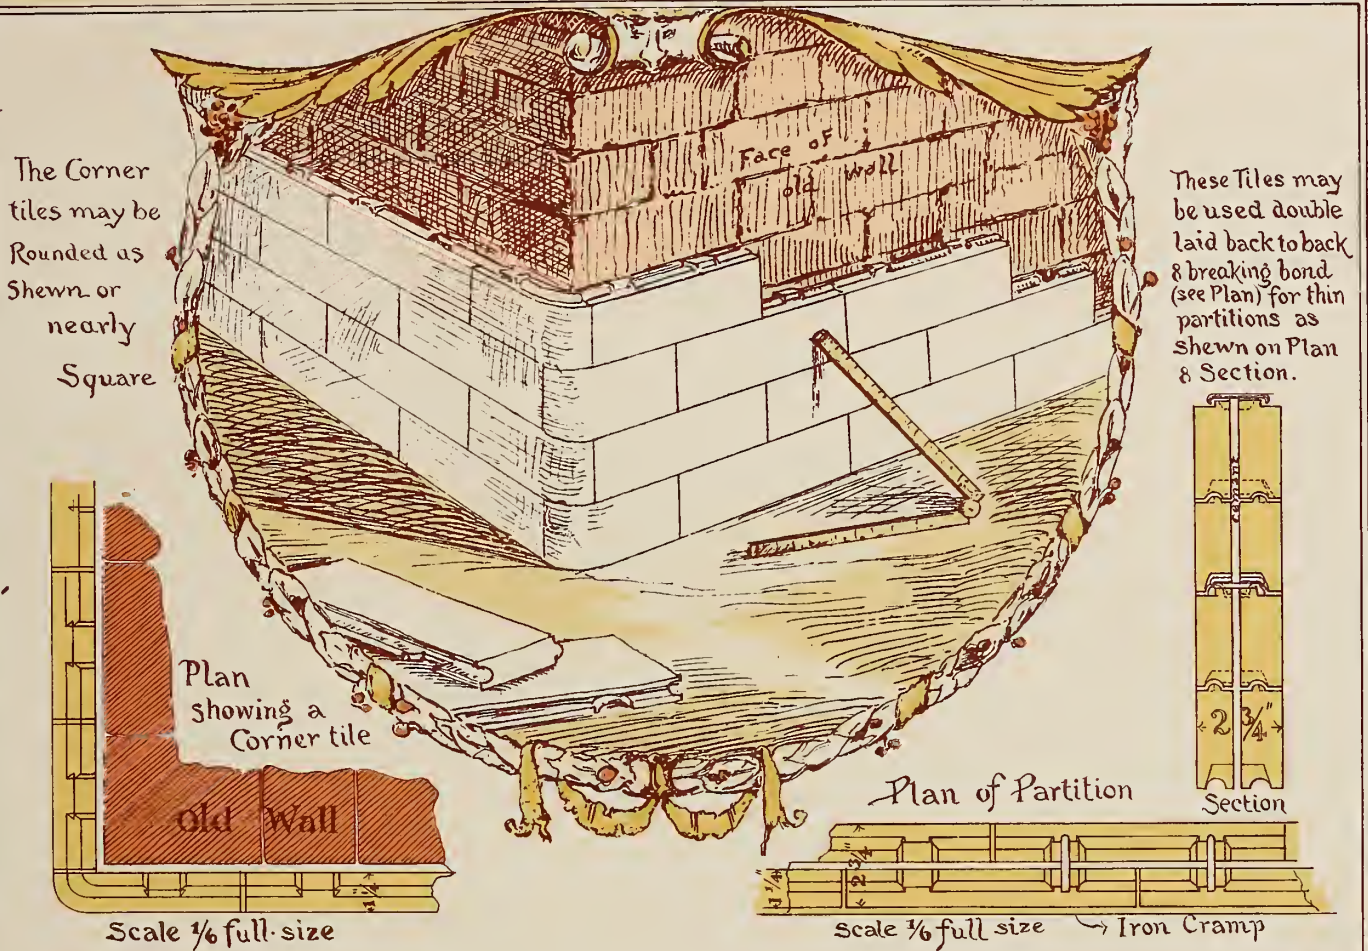 The Corner
tiles may be
Rounded as
Shewn or
nearly
Square
Face of
old wall
These Tiles may
be used double
laid back to back
& breaking bond
(see Plan) for thin
partitions as
shewn on Plan
& Section.
2 3/4"
Section
Plan
showing a
Corner tile
Old Wall
1 1/4"
Scale 1/6 full·size
Plan of Partition
2 3/4"
1 1/4"
Scale 1/6 full size
Iron Cramp